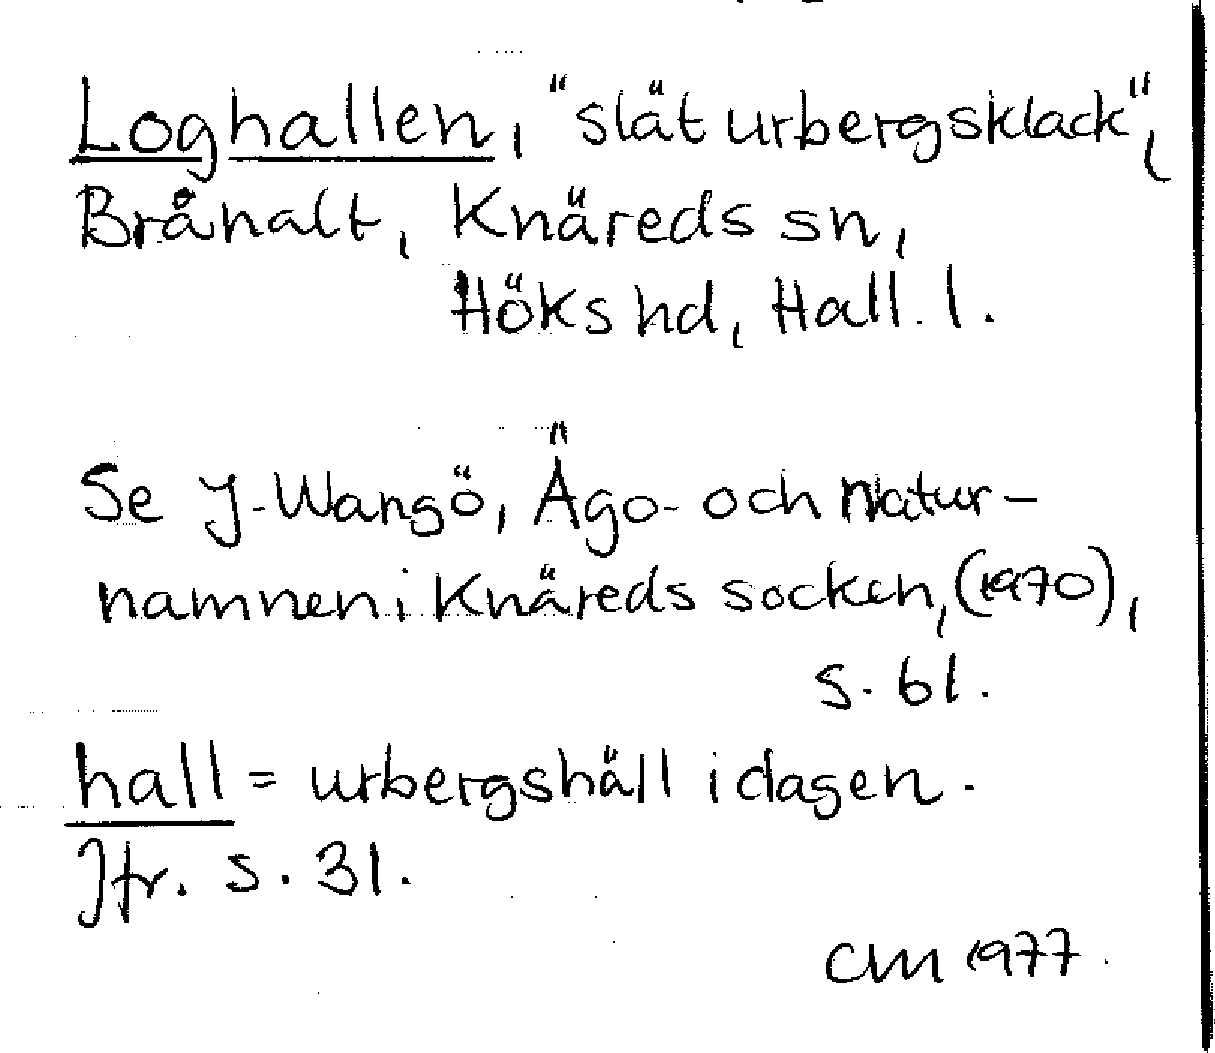 Loghallen, "slät urbergsklack",
Bråhalt, Knäreds sn,
Höks hd, Hall. l.
Se J. Wangö, Ägo- och natur-
namnen i Knäreds socken, (1970),
s. 61.
hall = urbergshäll i dagen.
Jfr. s. 31.
CM 1977.